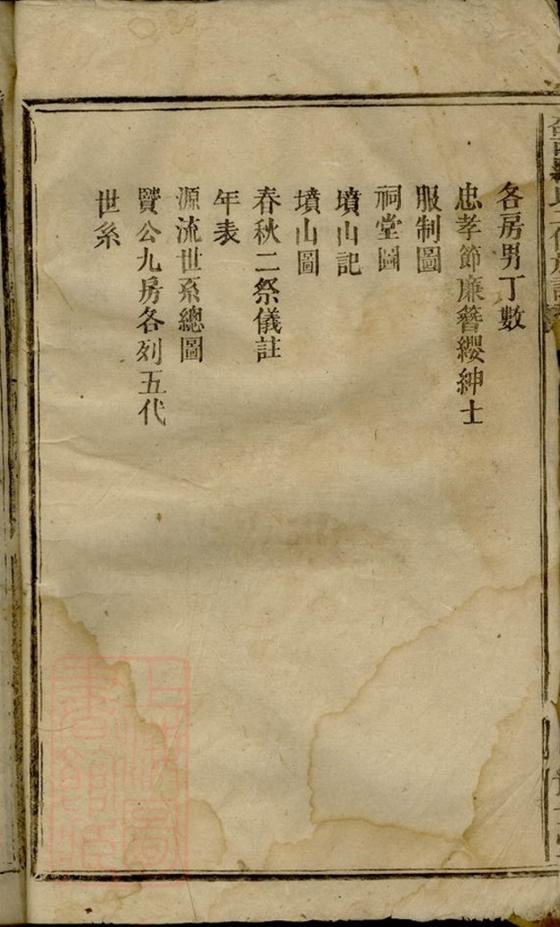 各房男丁數
忠孝節廉簪纓紳士
服制圖
祠堂圖
墳山記
墳山圖
春秋二祭儀註
年表
源流世系總圖
贒公九房各列五代
世系